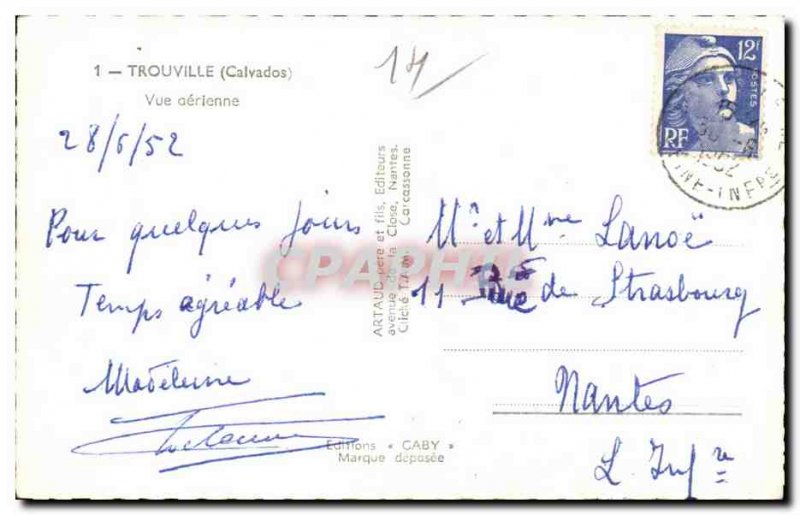 1 — TROUVILLE (Calvados)
Vue aérienne
28/6/52
Pour quelques jours
Temps agréable
Madeleine
14
ARTAUD père et fils, Editeurs
avenue de la Close, Nantes.
Carcassonne
Editions « GABY »
Marque déposée
12F
POSTES
RF
1952
INF-INFRE
Mr et Mme Lanoë
11 Rue de Strasbourg
Nantes
L. Infre
CPAPHIL